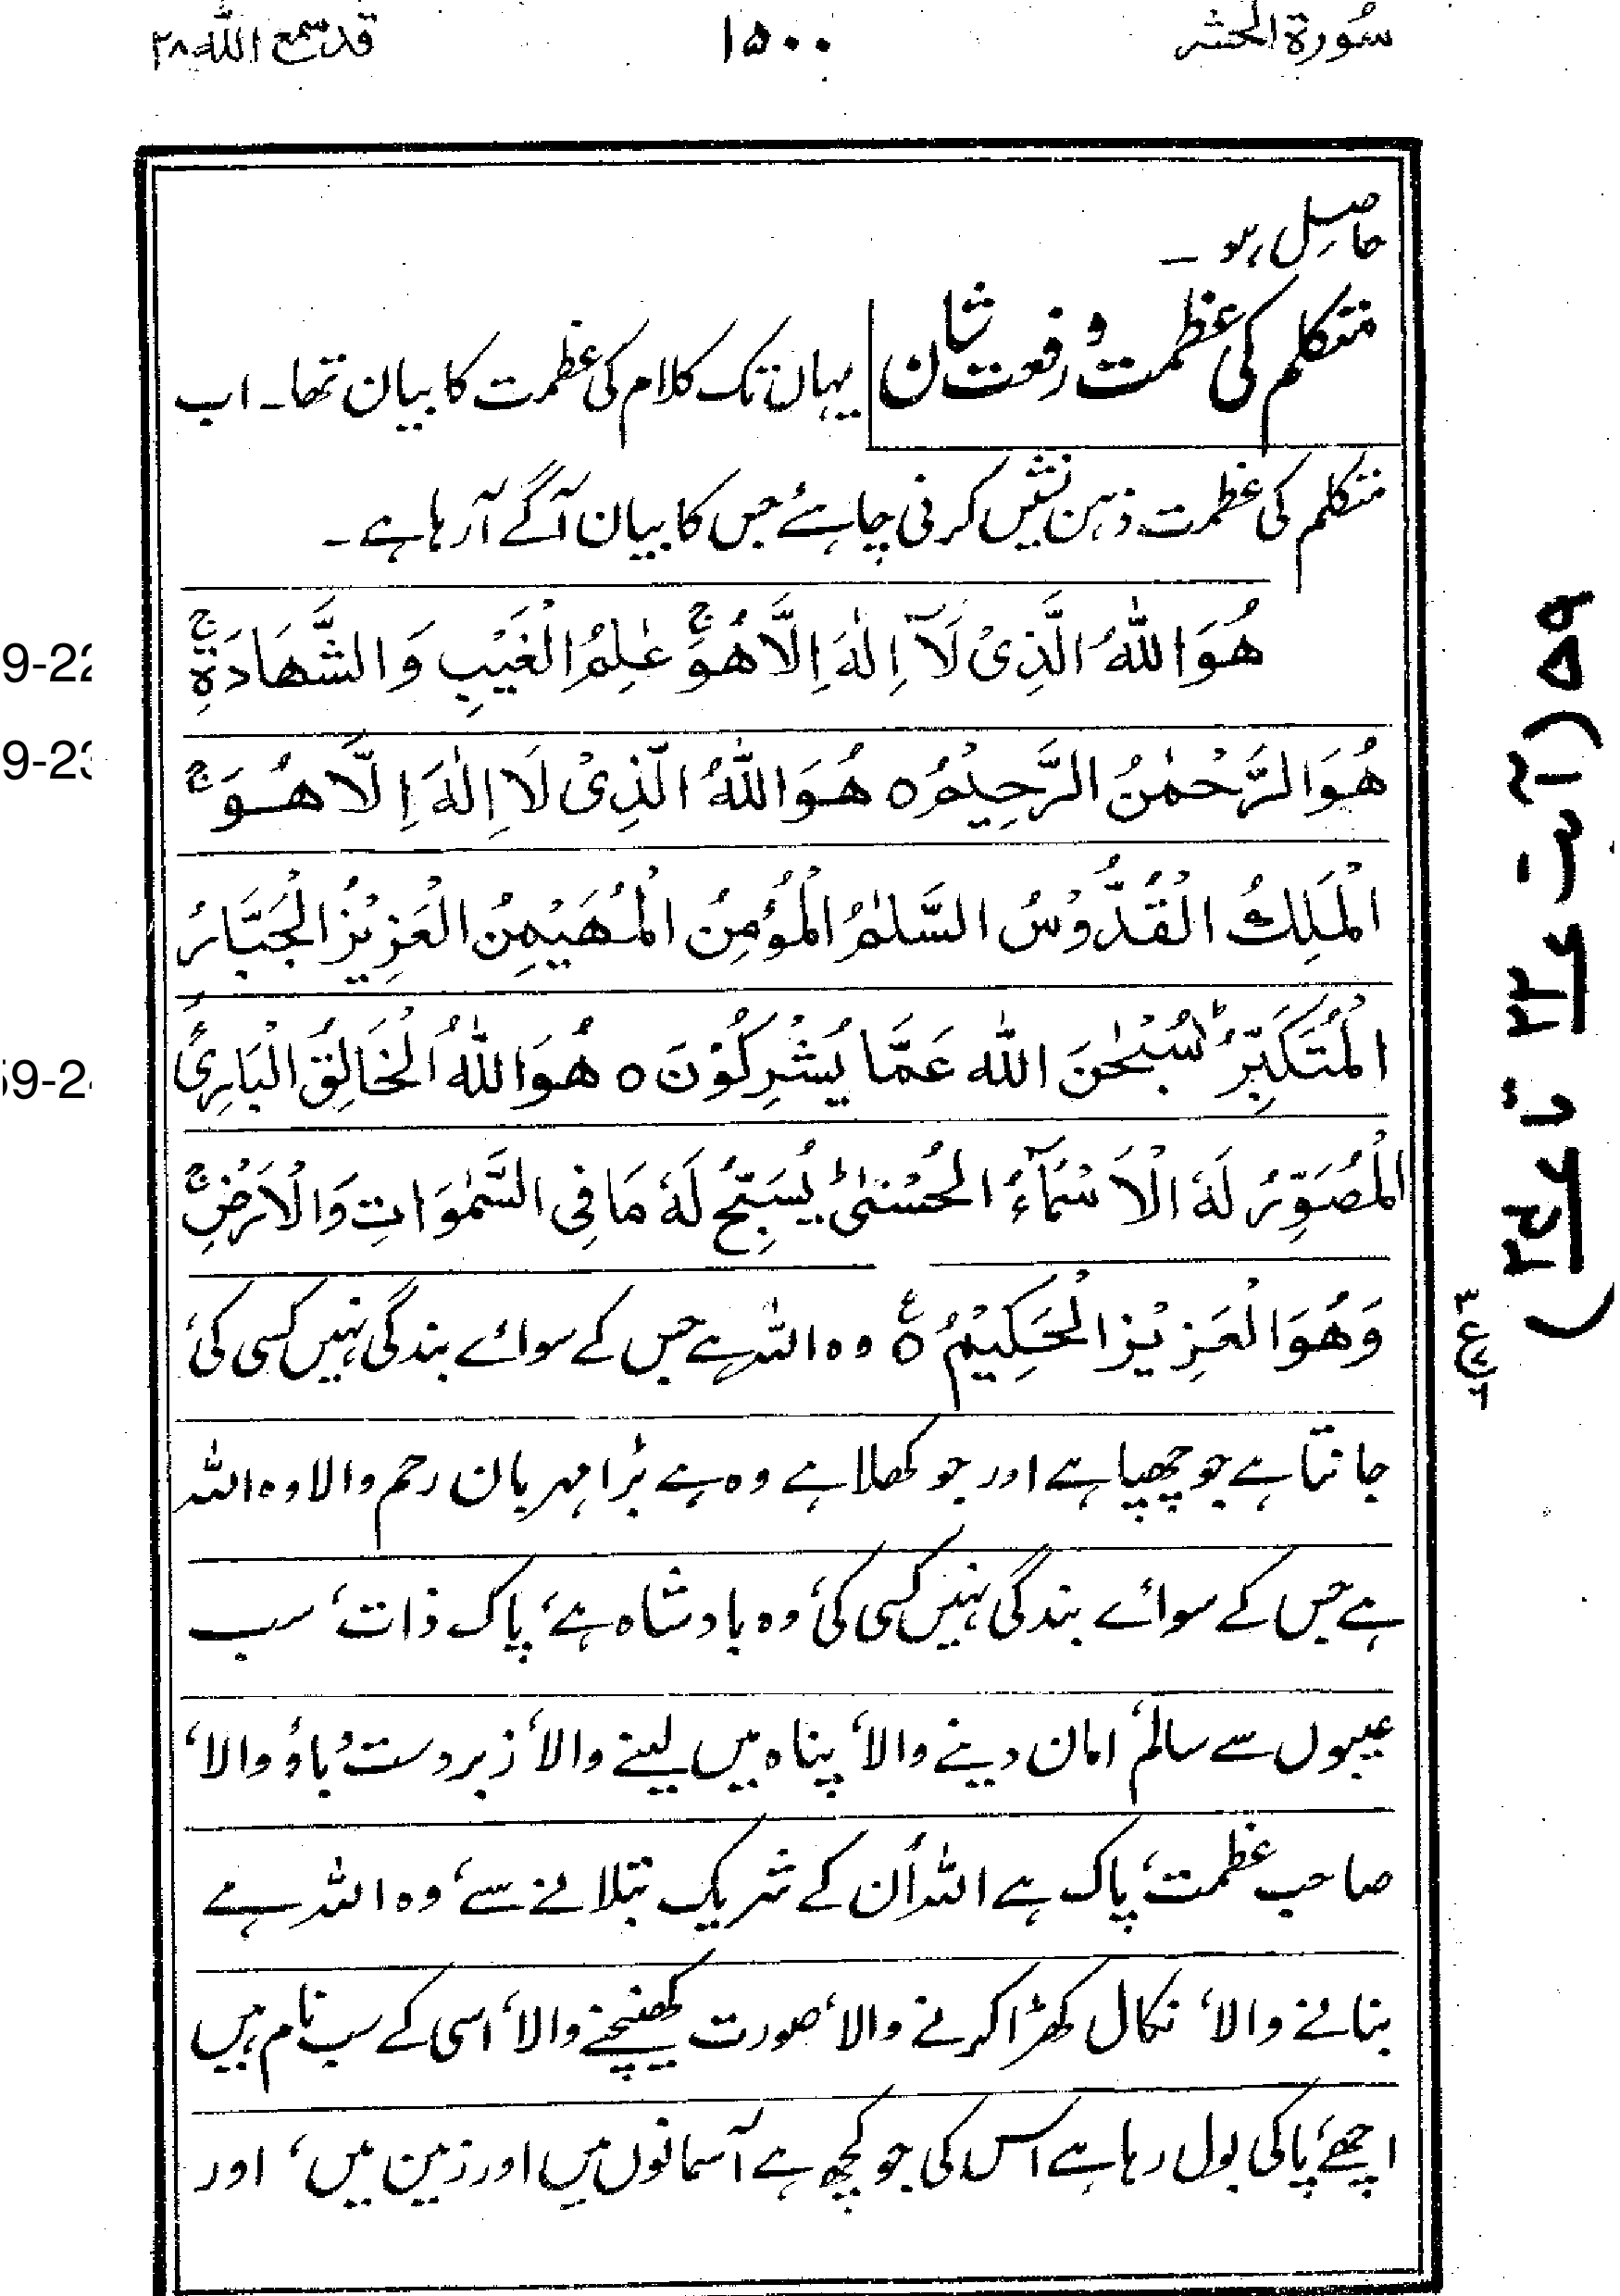 سُورة الحشر ۱۵۰۰ قد سمع الله ۲۸
حاصل ہو ۔
متکلم کی عظمت و رفعت شان یہاں تک کلام کی عظمت کا بیان تھا۔ اب
متکلم کی عظمت ذہن نشیں کرنی چاہئے جس کا بیان آگے آرہا ہے ۔
9-22
هُوَ اللّٰهُ الَّذِیْ لَآ اِلٰهَ اِلَّا هُوَ ۚ عٰلِمُ الْغَیْبِ وَ الشَّهَادَةِ ۚ
9-23
هُوَ الرَّحْمٰنُ الرَّحِیْمُ ○ هُوَ اللّٰهُ الَّذِیْ لَا اِلٰهَ اِلَّا هُوَ ۚ
الْمَلِكُ الْقُدُّوْسُ السَّلٰمُ الْمُؤْمِنُ الْمُهَیْمِنُ الْعَزِیْزُ الْجَبَّارُ
الْمُتَكَبِّرُ ؕ سُبْحٰنَ اللّٰه عَمَّا یُشْرِكُوْنَ ○ هُوَ اللّٰهُ الْخَالِقُ الْبَارِئُ
59-2
الْمُصَوِّرُ لَهُ الْاَسْمَآءُ الْحُسْنٰی ؕ یُسَبِّحُ لَهٗ مَا فِی السَّمٰوَاتِ وَالْاَرْضِ ۚ
وَهُوَ الْعَزِیْزُ الْحَكِیْمُ ○ ع وہ اللہ ہے جس کے سوائے بندگی نہیں کسی کی،
جانتا ہے جو چھپا ہے اور جو کھلا ہے وہ ہے بڑا مہربان رحم والا وہ اللہ
ہے جس کے سوائے بندگی نہیں کسی کی، وہ بادشاہ ہے، پاک ذات، سب
عیبوں سے سالم، امان دینے والا، پناہ میں لینے والا، زبردست دباؤ والا،
صاحب عظمت، پاک ہے اللہ اُن کے شریک بتلانے سے، وہ اللہ ہے
بنانے والا، نکال کھڑا کرنے والا، صورت کھینچنے والا، اسی کے سب نام ہیں
اچھے، پاکی بول رہا ہے اس کی جو کچھ ہے آسمانوں میں اور زمین میں، اور
۵۹ (آیت ۲۲ تا ۲۴)
۳
ع
۶